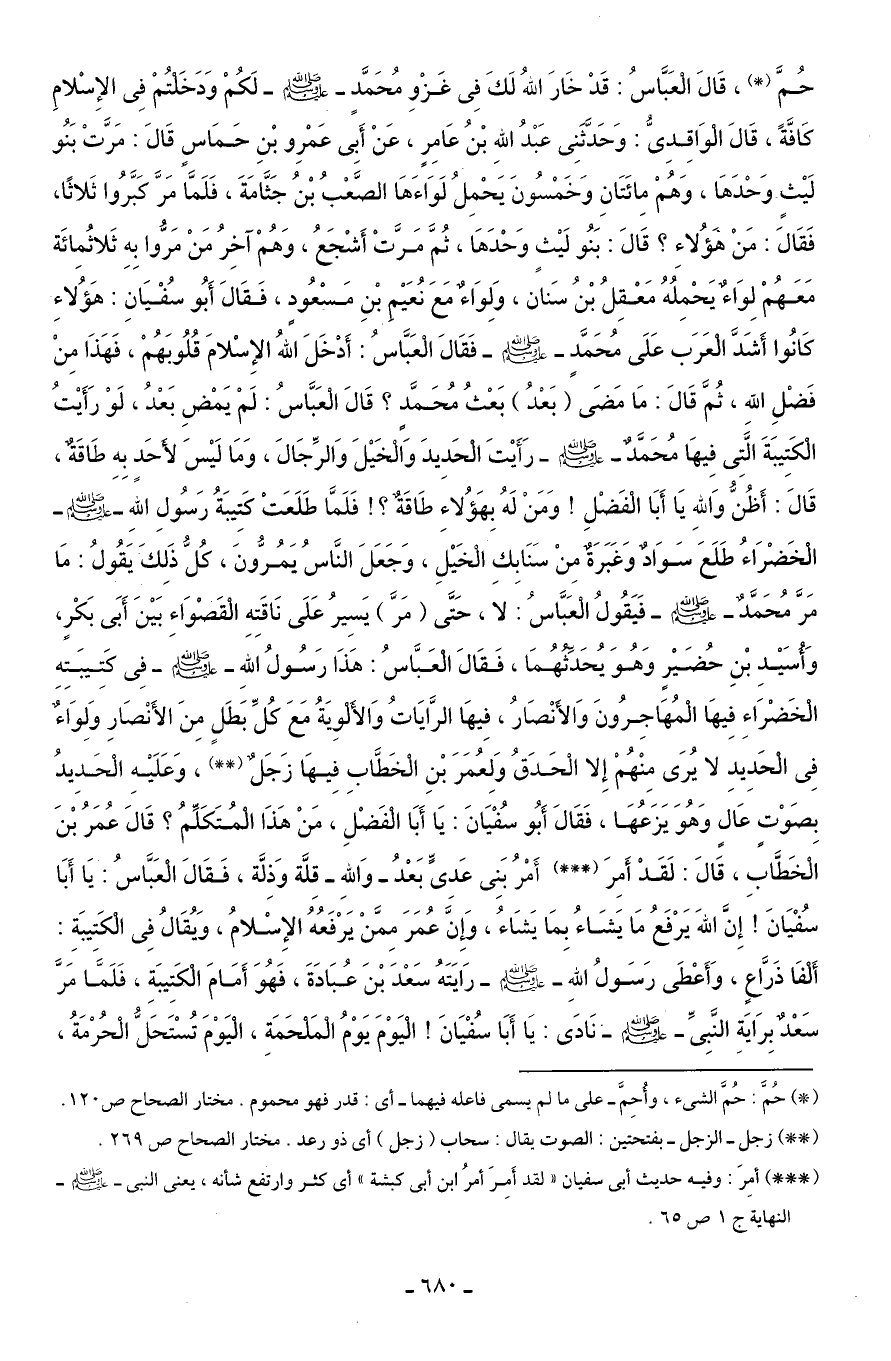 حُمَّ (*) ، قَالَ الْعَبَّاسُ : قَدْ خَارَ اللهُ لَكَ فِى غَزْوِ مُحَمَّدٍ ـ ﷺ ـ لَكُمْ وَدَخَلْتُمْ فِى الإِسْلامِ
كَافَّةً ، قَالَ الْوَاقِدِىُّ : وَحَدَّثَنِى عَبْدُ اللهِ بْنُ عَامِرٍ ، عَنْ أَبِى عَمْرِو بْنِ حَمَاسٍ قَالَ : مَرَّتْ بَنُو
لَيْثٍ وَحْدَهَا ، وَهُمْ مِائَتَانِ وَخَمْسُونَ يَحْمِلُ لِوَاءَهَا الصَّعْبُ بْنُ جَثَّامَةَ ، فَلَمَّا مَرَّ كَبَّرُوا ثَلاثًا،
فَقَالَ : مَنْ هَؤُلاءِ ؟ قَالَ : بَنُو لَيْثٍ وَحْدَهَا ، ثُمَّ مَرَّتْ أَشْجَعُ ، وَهُمْ آخِرُ مَنْ مَرُّوا بِهِ ثَلاثُمِائَةٍ
مَعَهُمْ لِوَاءٌ يَحْمِلُهُ مَعْقِلُ بْنُ سِنَانٍ ، وَلِوَاءٌ مَعَ نُعَيْمِ بْنِ مَسْعُودٍ ، فَقَالَ أَبُو سُفْيَانَ : هَؤُلاءِ
كَانُوا أَشَدَّ الْعَرَبِ عَلَى مُحَمَّدٍ ـ ﷺ ـ فَقَالَ الْعَبَّاسُ : أَدْخَلَ اللهُ الإِسْلامَ قُلُوبَهُمْ ، فَهَذَا مِنْ
فَضْلِ اللهِ ، ثُمَّ قَالَ : مَا مَضَى ( بَعْدُ ) بَعْثُ مُحَمَّدٍ ؟ قَالَ الْعَبَّاسُ : لَمْ يَمْضِ بَعْدُ ، لَوْ رَأَيْتَ
الْكَتِيبَةَ الَّتِى فِيهَا مُحَمَّدٌ ـ ﷺ ـ رَأَيْتَ الْحَدِيدَ وَالْخَيْلَ وَالرِّجَالَ ، وَمَا لَيْسَ لأَحَدٍ بِهِ طَاقَةٌ ،
قَالَ : أَظُنُّ وَاللهِ يَا أَبَا الْفَضْلِ ! وَمَنْ لَهُ بِهَؤُلاءِ طَاقَةٌ ؟! فَلَمَّا طَلَعَتْ كَتِيبَةُ رَسُولِ اللهِ ـ ﷺ ـ
الْخَضْرَاءُ طَلَعَ سَوَادٌ وَغَبَرَةٌ مِنْ سَنَابِكِ الْخَيْلِ ، وَجَعَلَ النَّاسُ يَمُرُّونَ ، كُلُّ ذَلِكَ يَقُولُ : مَا
مَرَّ مُحَمَّدٌ ـ ﷺ ـ فَيَقُولُ الْعَبَّاسُ : لا ، حَتَّى ( مَرَّ ) يَسِيرُ عَلَى نَاقَتِهِ الْقَصْوَاءِ بَيْنَ أَبِى بَكْرٍ،
وَأُسَيْدِ بْنِ حُضَيْرٍ وَهُوَ يُحَدِّثُهُمَا ، فَقَالَ الْعَبَّاسُ : هَذَا رَسُولُ اللهِ ـ ﷺ ـ فِى كَتِيبَتِهِ
الْخَضْرَاءِ فِيهَا الْمُهَاجِرُونَ وَالأَنْصَارُ ، فِيهَا الرَّايَاتُ وَالأَلْوِيَةُ مَعَ كُلِّ بَطَلٍ مِنَ الأَنْصَارِ وَلِوَاءٌ
فِى الْحَدِيدِ لا يُرَى مِنْهُمْ إِلا الْحَدَقُ وَلِعُمَرَ بْنِ الْخَطَّابِ فِيهَا زَجَلٌ (**) ، وَعَلَيْهِ الْحَدِيدُ
بِصَوْتٍ عَالٍ وَهُوَ يَزَعُهَا ، فَقَالَ أَبُو سُفْيَانَ : يَا أَبَا الْفَضْلِ ، مَنْ هَذَا الْمُتَكَلِّمُ ؟ قَالَ عُمَرُ بْنُ
الْخَطَّابِ ، قَالَ : لَقَدْ أَمِرَ (***) أَمْرُ بَنِى عَدِىٍّ بَعْدُ ـ وَاللهِ ـ قِلَّةٍ وَذِلَّةٍ ، فَقَالَ الْعَبَّاسُ : يَا أَبَا
سُفْيَانَ ! إِنَّ اللهَ يَرْفَعُ مَا يَشَاءُ بِمَا يَشَاءُ ، وَإِنَّ عُمَرَ مِمَّنْ يَرْفَعُهُ الإِسْلامُ ، وَيُقَالُ فِى الْكَتِيبَةِ :
أَلْفَا ذَرَّاعٍ ، وَأَعْطَى رَسُولُ اللهِ ـ ﷺ ـ رَايَتَهُ سَعْدَ بْنَ عُبَادَةَ ، فَهُوَ أَمَامَ الْكَتِيبَةِ ، فَلَمَّا مَرَّ
سَعْدٌ بِرَايَةِ النَّبِىِّ ـ ﷺ ـ نَادَى : يَا أَبَا سُفْيَانَ ! الْيَوْمَ يَوْمُ الْمَلْحَمَةِ ، الْيَوْمَ تُسْتَحَلُّ الْحُرْمَةُ ،
(*) حُمَّ : حُمَّ الشىء ، وأُحِمَّ ـ على ما لم يسمى فاعله فيهما ـ أى : قدر فهو محموم . مختار الصحاح ص١٢٠.
(**) زجل ـ الزجل ـ بفتحتين : الصوت يقال : سحاب ( زجل ) أى ذو رعد . مختار الصحاح ص ٢٦٩ .
(***) أمِرَ : وفيه حديث أبى سفيان « لقد أمِرَ أمرُ ابن أبى كبشة » أى كثر وارتفع شأنه ، يعنى النبى ـ ﷺ ـ
النهاية ج ١ ص ٦٥ .
ـ ٦٨٠ ـ